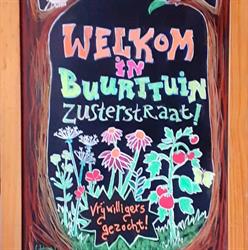 WELKOM
in
BUURTTUIN
Zusterstraat!
Vrijwilligers
gezocht!